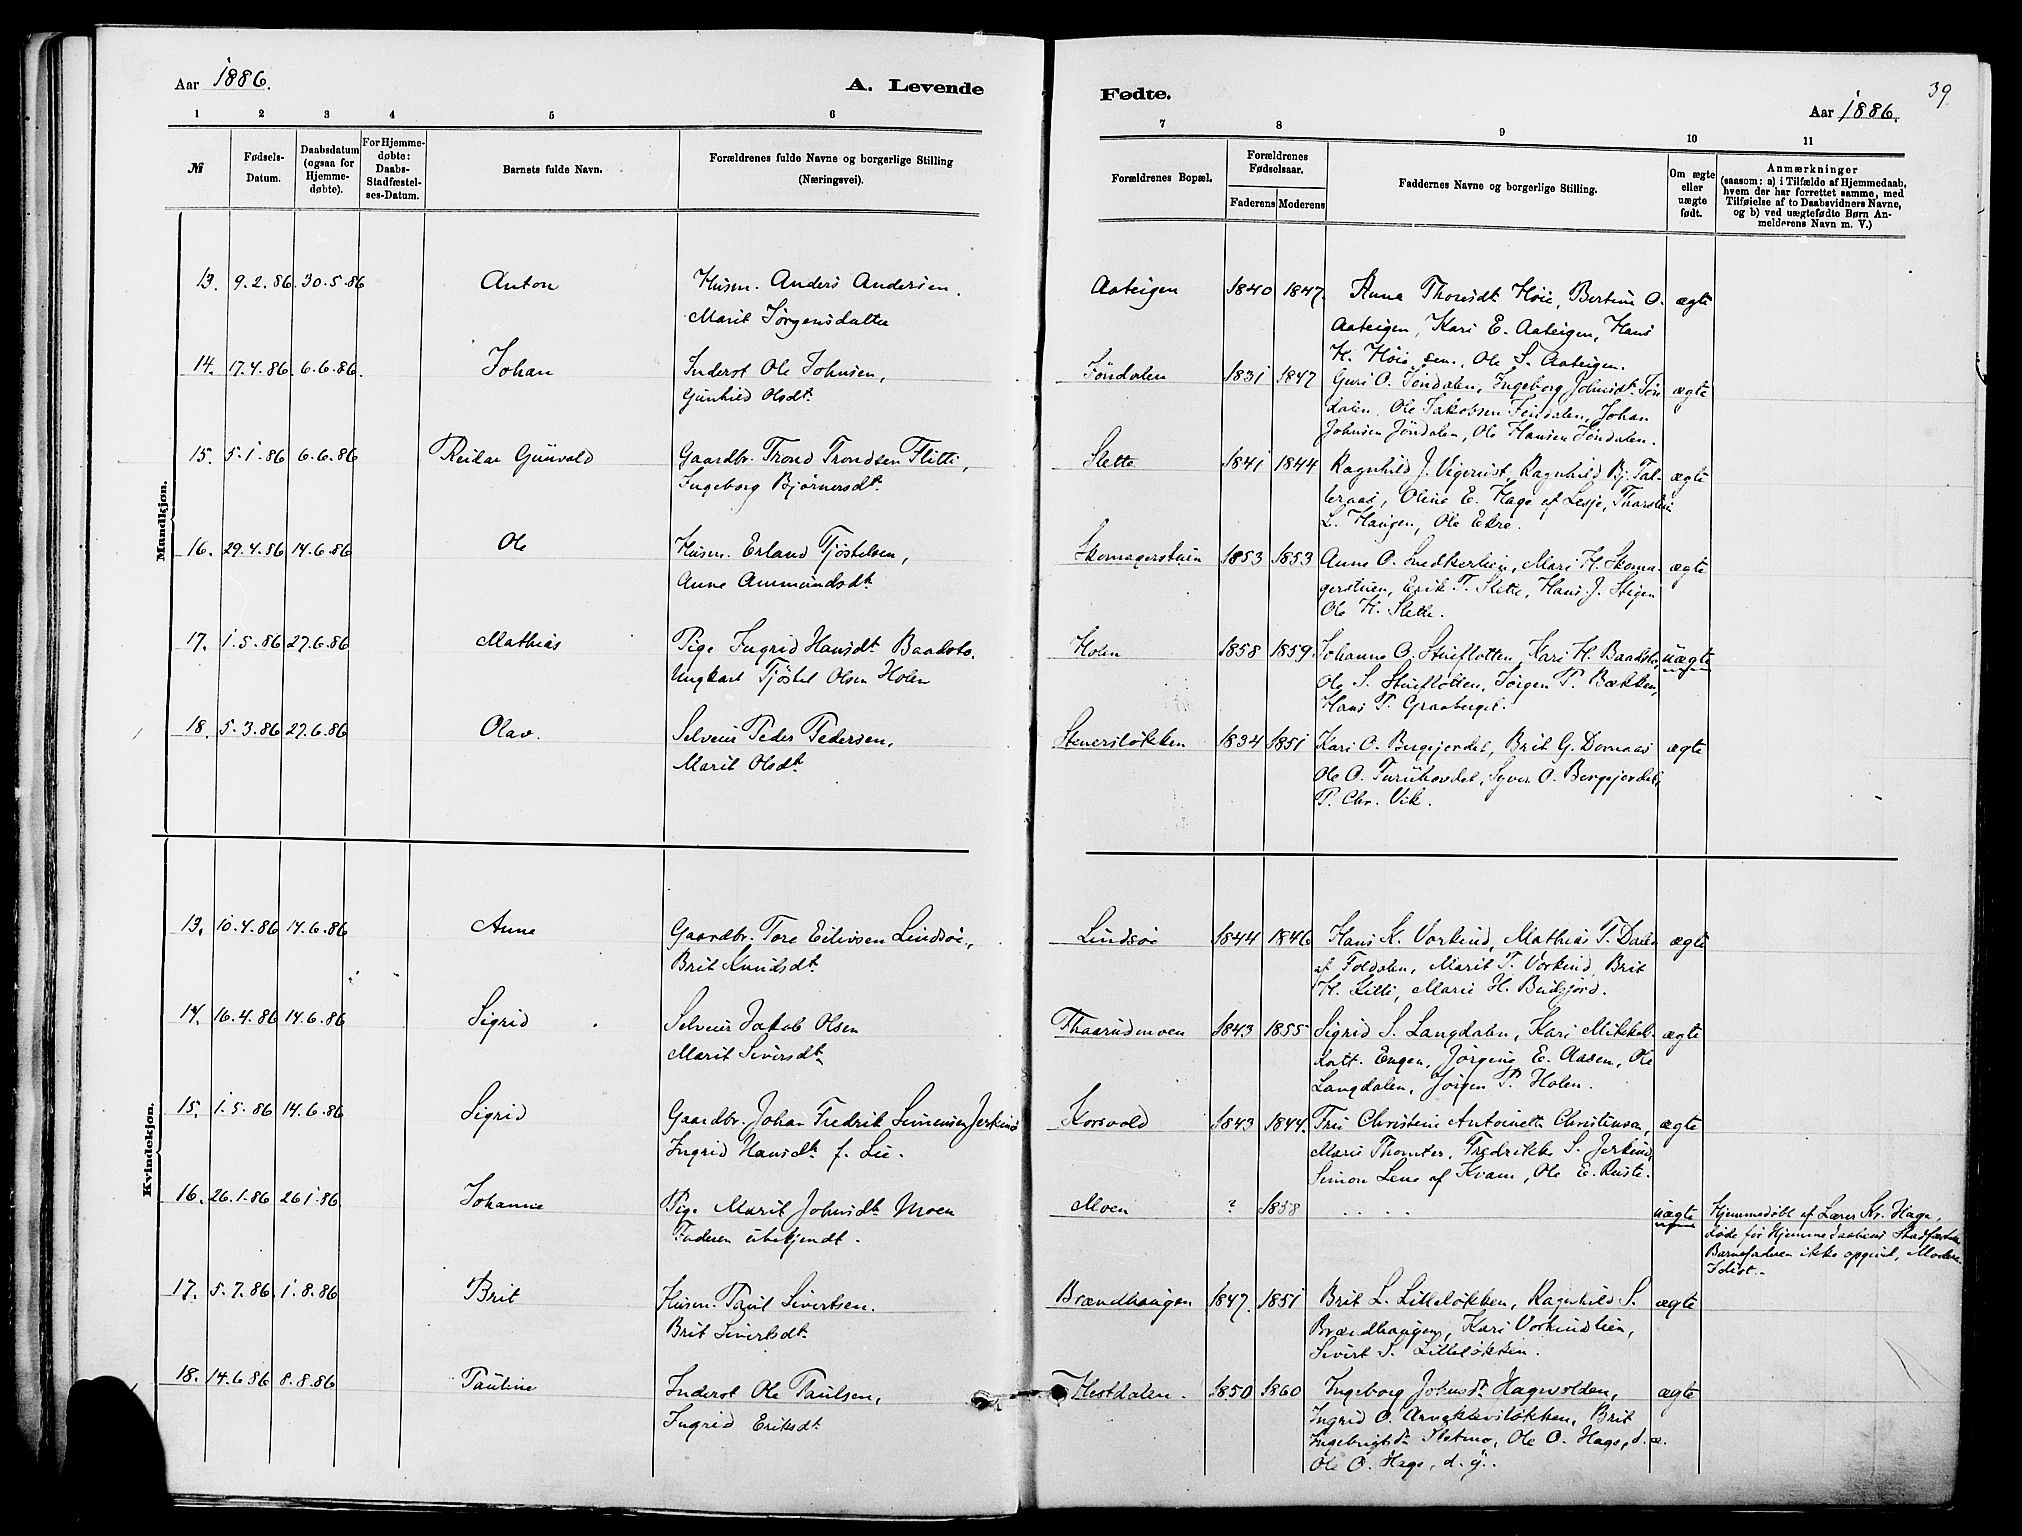 Aar 1886.
A. Levende
1 2 3 4 5 6
№
Fødsels-
Datum.
Daabsdatum
(ogsaa for
Hjemme-
døbte).
For Hjemme-
døbte:
Daabs-
Stadfæstel-
ses-Datum.
Barnets fulde Navn.
Forældrenes fulde Navne og borgerlige Stilling
(Næringsvei).
Mandkjøn.
13. 9.2.86 30.5.86 Anton Husm. Anders Andersen.
Marit Jørgensdatter
14. 17.4.86. 6.6.86. Johan Inderst Ole Johnsen,
Gunhild Olsdt.
15. 5.1.86 6.6.86 Reidar Gunvald Gaardbr. Trond Trondsen Flitti,
Ingeborg Bjørnersdt.
16. 29.4.86 14.6.86 Ole Husm. Erland Tjøstelsen,
Anne Ammundsdt.
17. 1.5.86 27.6.86 Mathias Pige Ingrid Hansdt. Baaksto.
Ungkarl Tjøstel Olsen Holen
18. 5.3.86 27.6.86 Olav. Selveier Peder Pedersen,
Marit Olsdt.
Kvindekjøn.
13. 10.4.86 14.6.86 Anne Gaardbr. Tore Eilivsen Lindsøe,
Brit Knudsdt.
14. 16.4.86 14.6.86 Sigrid Selveier Jakob Olsen
Marit Siversdt.
15. 1.5.86 14.6.86 Sigrid Gaardbr. Johan Fredrik Simensen Jerkind
Ingrid Hansdt. f. Lie.
16. 26.1.86 26.1.86 Johanne Pige Marit Johnsdt. Moen
Faderen ubekjendt.
17. 5.7.86 1.8.86 Brit Husm. Paul Sivertsen.
Brit Sivertsdt.
18. 14.6.86 8.8.86 Pauline Inderst Ole Paulsen,
Ingrid Eriksdt.
39.
Fødte.
Aar 1886.
7 8 9 10 11
Forældrenes Bopæl.
Forældrenes
Fødselsaar.
Faderens Moderens
Faddernes Navne og borgerlige Stilling.
Om ægte
eller
uægte
født.
Anmærkninger
(saasom: a) i Tilfælde af Hjemmedaab,
hvem der har forrettet samme, med
Tilføielse af to Daabsvidners Navne,
og b) ved uægtefødte Børn An-
melderens Navn m. V.)
Aateigen 1840 1847. Anna Thorsdt Høie, Bertine O. ægte
Aateigen, Kari E. Aateigen, Hans
H. Høie sen. Ole S. Aateigen.
Jøndalen 1831 1847 Guri O. Jøndalen, Ingeborg Johnsdt. Jøn ægte
dalen, Ole Jakobsen Jøndalen, Johan
Johnsen Jøndalen, Ole Hansen Jøndalen.
Slette 1841 1844 Ragnhild J. Vigerust, Ragnhild Bj. Tal- ægte
leraas, Oline E. Hage af Lesje, Thorstein
L. Haugen, Ole Ekre.
Skomagerstuen 1853 1853 Anne O. Snedkerlien, Mari H. Skoma- ægte
gerstuen, Erik T. Slette, Hans J. Stigen
Ole H. Slette.
Holen 1858 1859. Johanne O. Stueflotten, Kari H. Baaksto, uægte
Ole S. Stueflotten, Jørgen P. Bækken,
Hans T. Graaberget.
Stenersløkken 1834 1851 Kari O. Bergejordet, Brit G. Dornaas ægte
Ole O. Turuhovdet, Syver O. Bergejordet,
P. Chr. Vik.
Lindsøe 1844 1846 Hans K. Vorkind, Mathias T. Dalen ægte
af Foldalen, Marit T. Vorkind, Brit
H. Kitti, Marie H. Budsjord.
Thaarudmoen 1843 1855 Sigrid S. Langdalen, Kari Mikkels- ægte
datt. Engen, Jørgine E. Aasen, Ole
Langdalen, Jørgen P. Holen.
Korsvold 1843 1844. Fru Christine Antoinette Christensen, ægte
Marie Thomter, Fredrikke S. Jerkind,
Simon Lene af Kvam, Ole E. Ruste.
Moen ? 1858 . . . . . uægte Hjemmedøbt af Lærer Kr. Hage,
døde før Hjemmedaabens Stadfæstelse
Barnefaderen ikke opgivet, Moderen
Idiot.
Brændhaugen 1847. 1851 Brit L. Lilleløkken, Ragnhild S. ægte
Brændhaugen, Kari Vorkindlien,
Sivert S. Lilleløkken.
Hestdalen. 1850 1860 Ingeborg Johnsdt. Hagevolden, ægte
Ingrid O. Arneklevsløkken, Brit
Ingebrigtsdt. Sletmo, Ole O. Hage, d. æ.
Ole O. Hage, d. y.